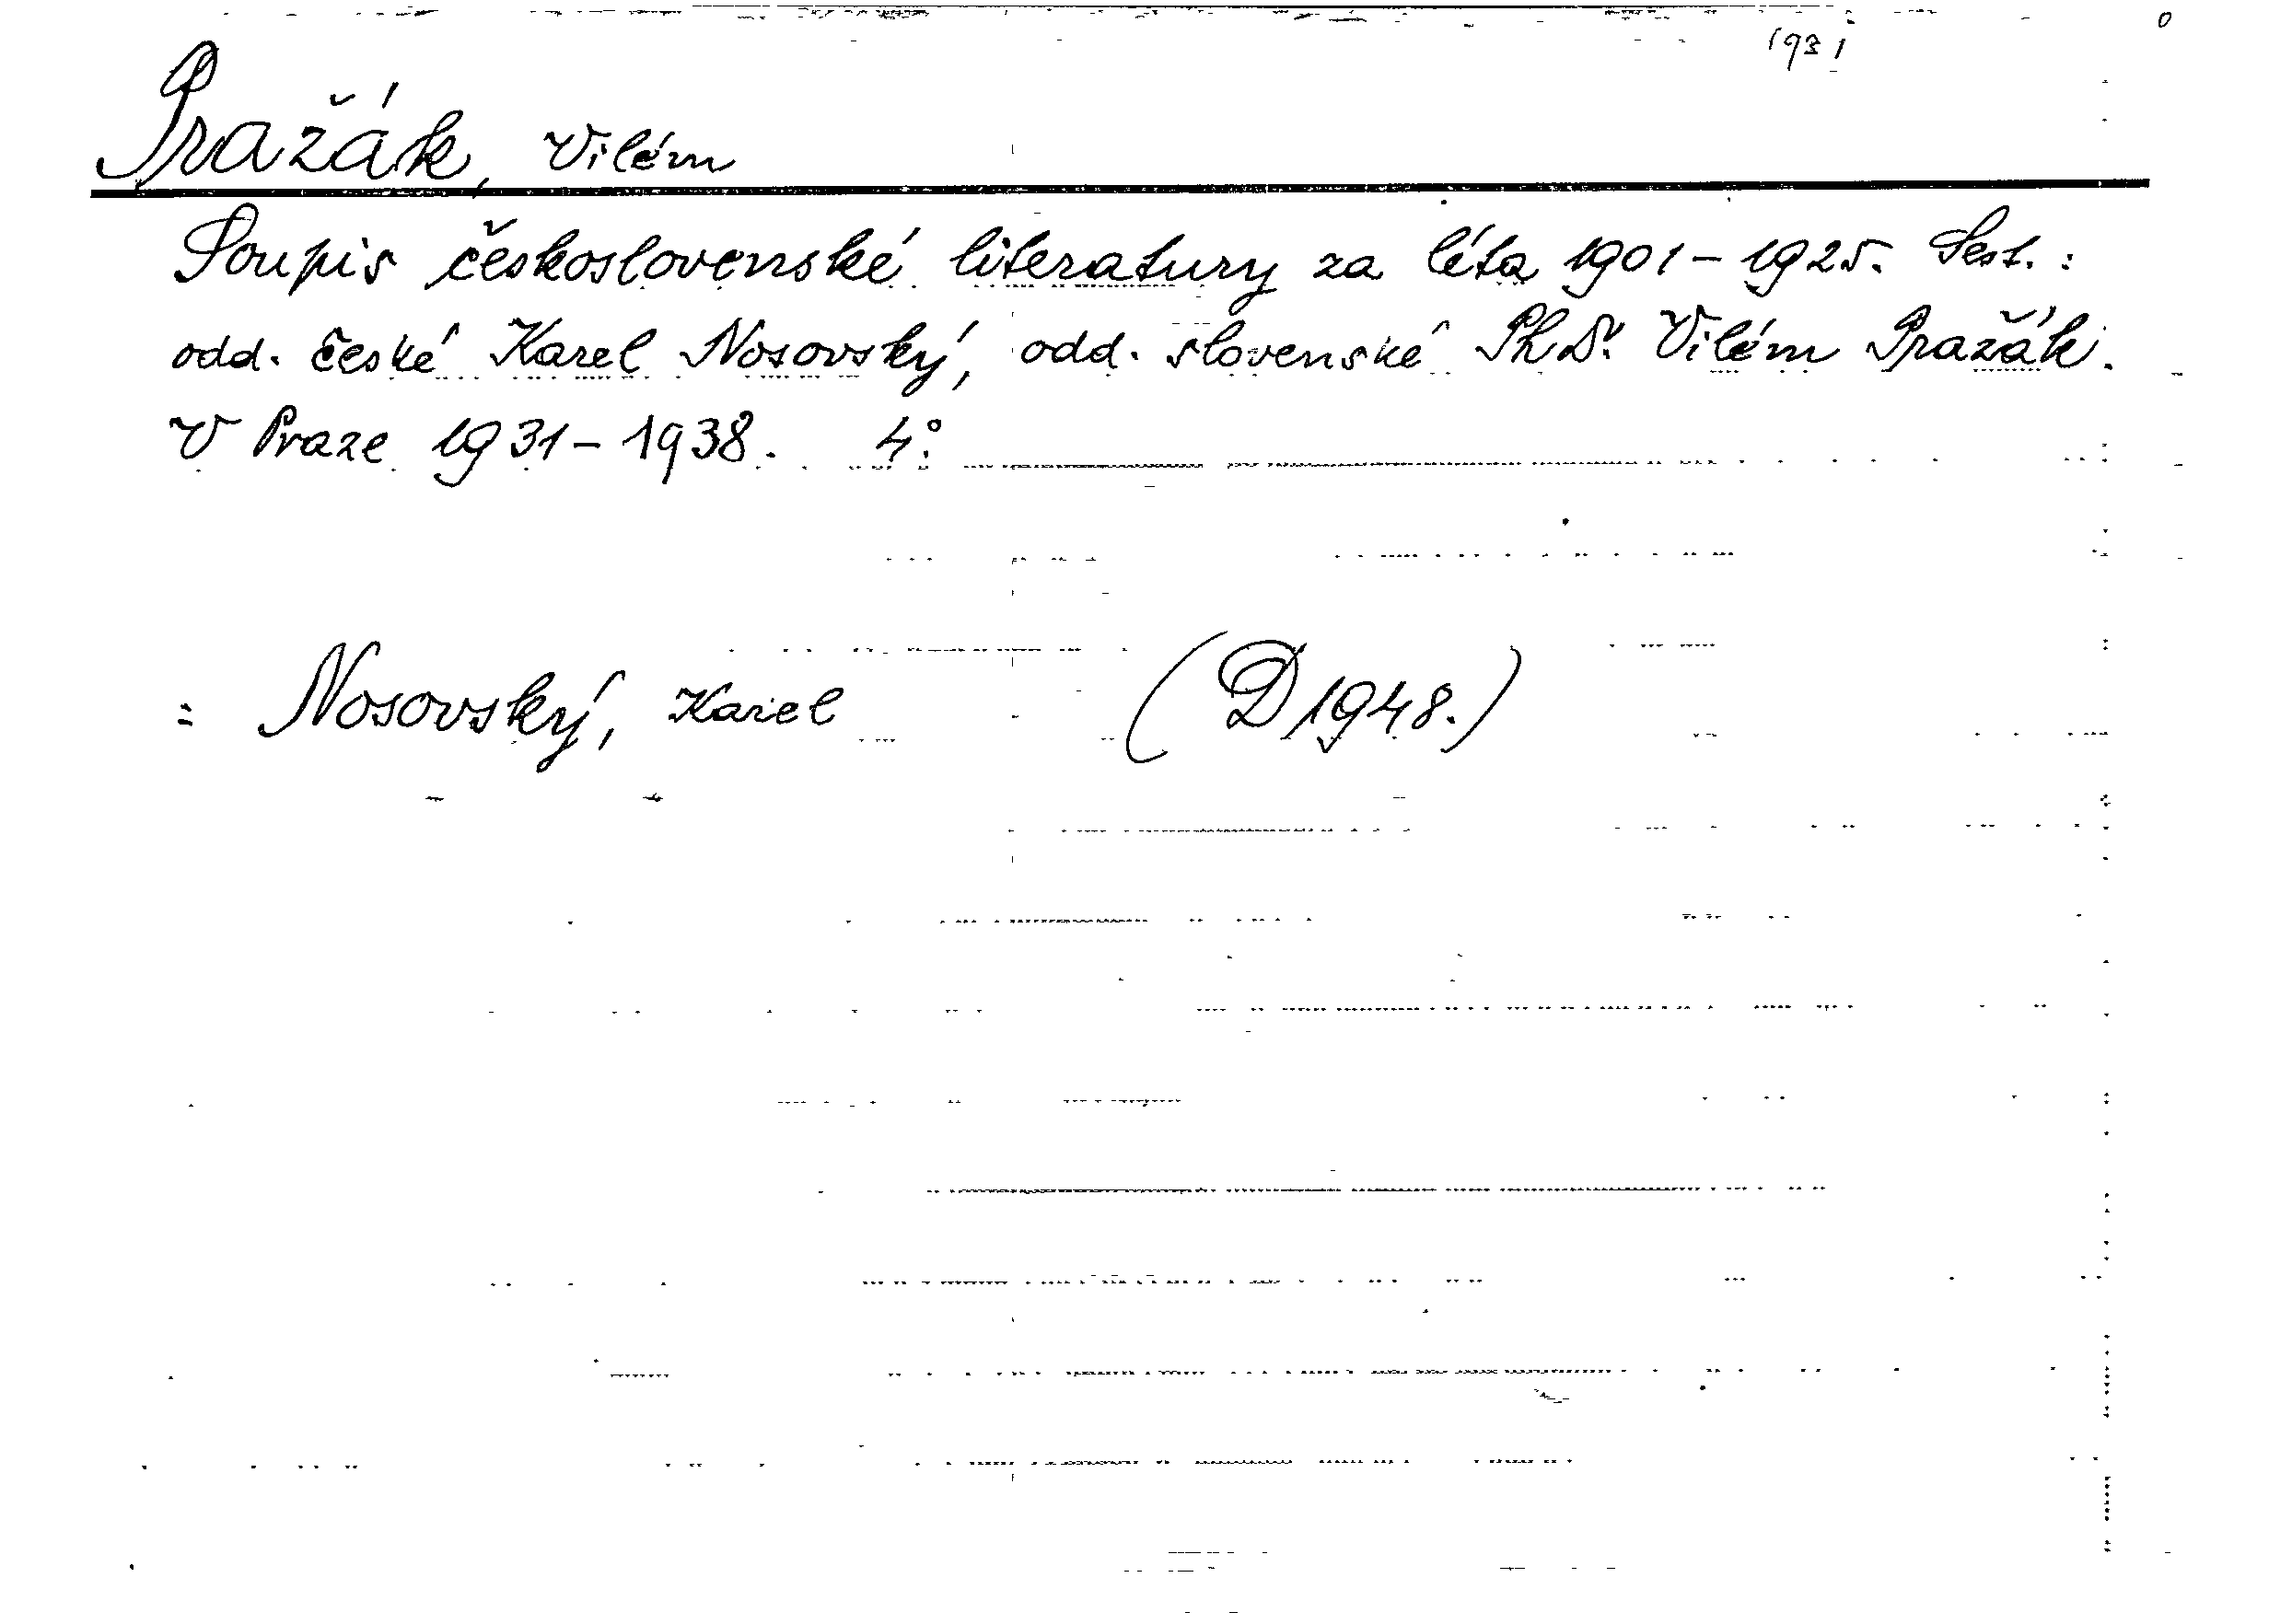 1931
Pražák, Vilém
Soupis československé literatury za léta 1901-1925. Sest.:
odd. české Karel Nosovský, odd. slovenské PhDr. Vilém Pražák.
V Praze 1931-1938. 4°.
= Nosovský, Karel (D 1948.)